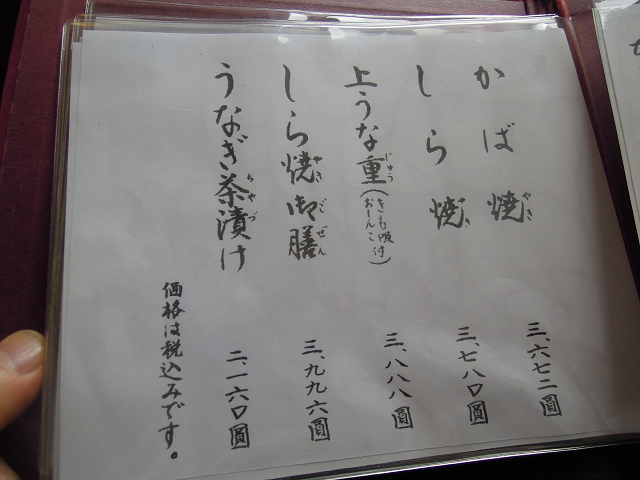 かば焼
やき
三、六七二圓
しら焼
やき
三、七八〇圓
上うな重
じゅう
(きも吸付
おしんこ)
三、八八八圓
しら焼御膳
やき ごぜん
三、九九六圓
うなぎ茶漬け
ちゃづ
二、一六〇圓
価格は税込みです。